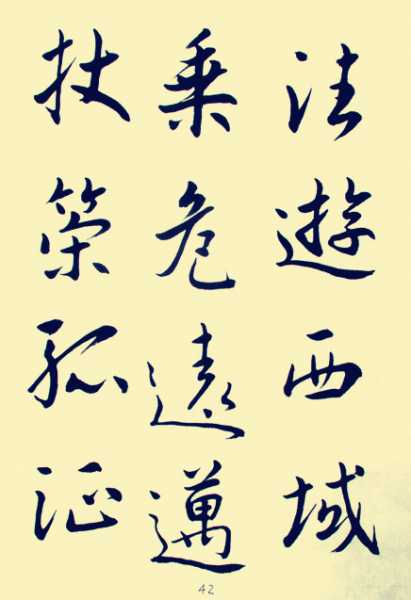 往遊西域
乘危遠邁
杖策孤征
42